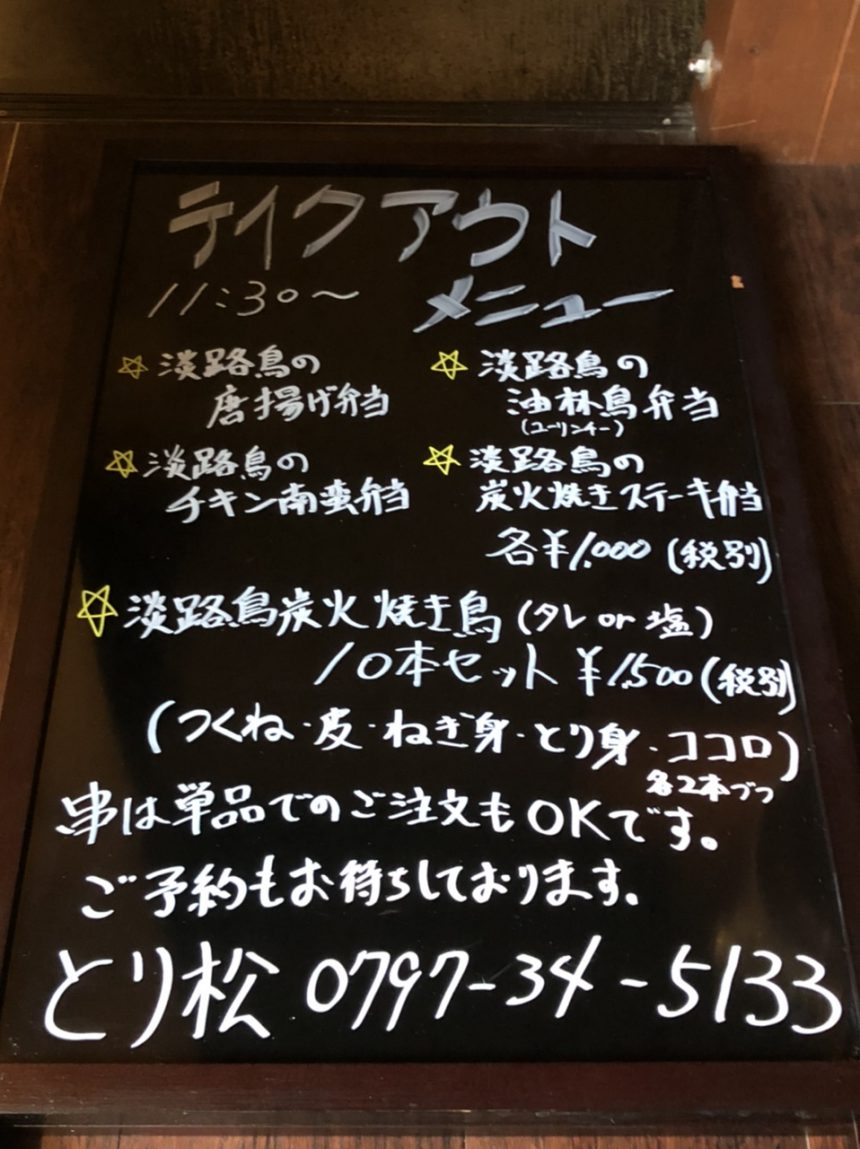 テイクアウト
11:30～ メニュー
☆淡路鳥の
唐揚げ弁当
☆淡路鳥の
油林鳥弁当
(ユーリンチー)
☆淡路鳥の
チキン南蛮弁当
☆淡路鳥の
炭火焼きステーキ弁当
各¥1,000(税別)
☆淡路鳥炭火焼き鳥(タレor塩)
10本セット ¥1,500(税別)
(つくね・皮・ねぎ身・とり身・ココロ)
各2本づつ
串は単品でのご注文もOKです。
ご予約もお待ちしております。
とり松 0797-34-5133